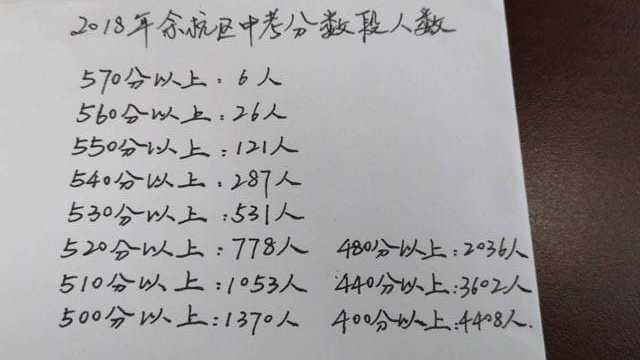 2018年余杭区中考分数段人数
570分以上:6人
560分以上:26人
550分以上:121人
540分以上:287人
530分以上:531人
520分以上:778人 480分以上:2036人
510分以上:1053人 440分以上:3602人
500分以上:1370人 400分以上:4408人.